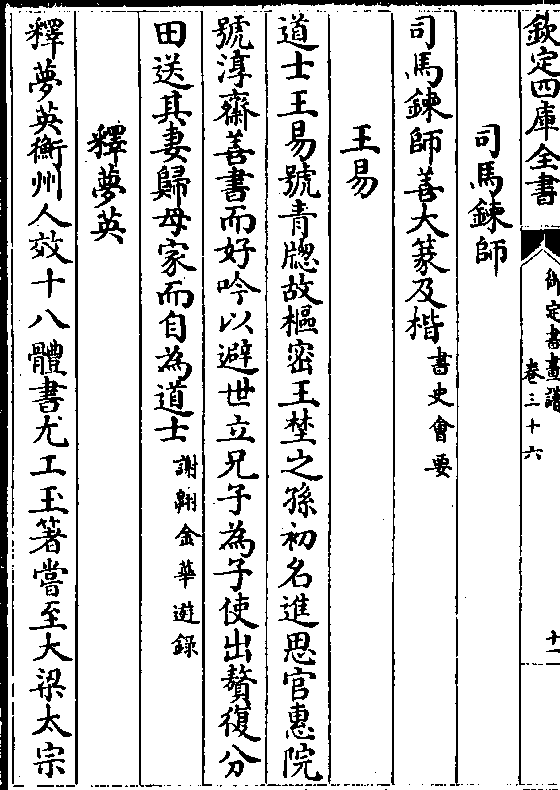 欽定四庫全書
御定書畫譜
卷三十六
十一
司馬鍊師
司馬鍊師善大篆及楷書史會要
王易
道士王易號青牕故樞密王埜之孫初名進思官惠院
號淳齋善書而好吟以避世立兄子為子使出贅復分
田送其妻歸母家而自為道士謝翱金華遊録
釋夢英
釋夢英衡州人效十八體書尤工玉箸嘗至大梁太宗